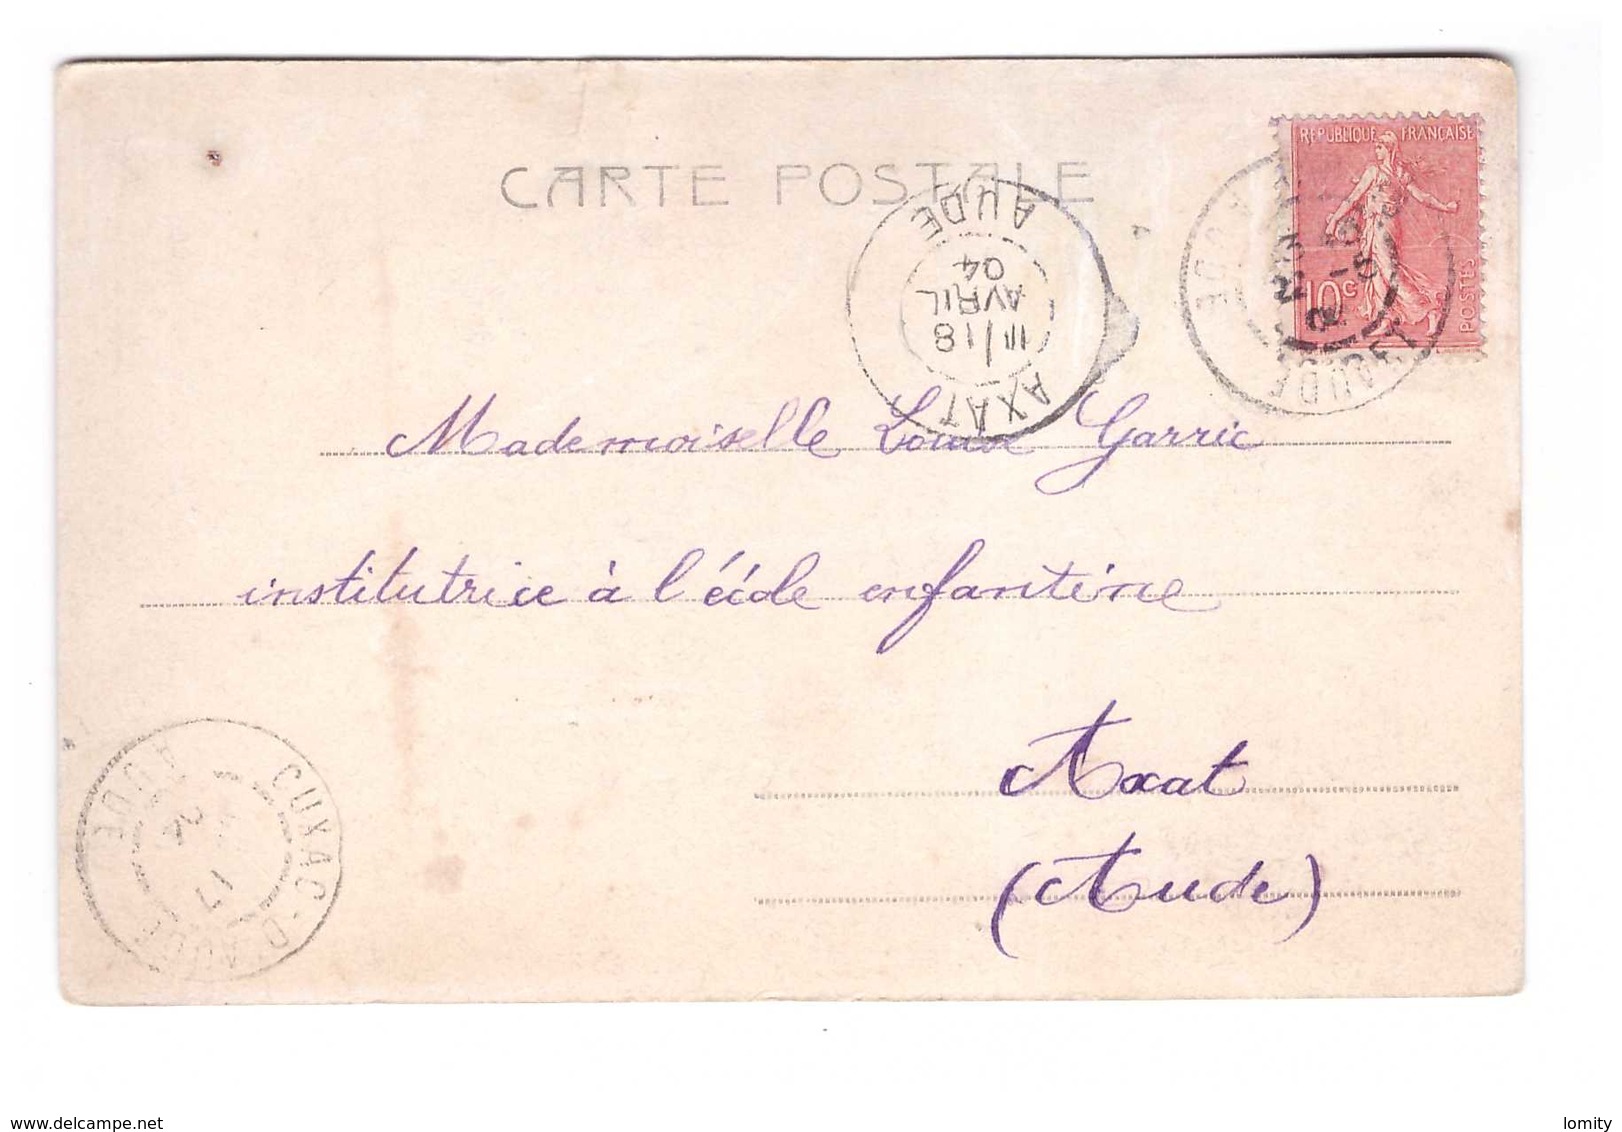 CARTE POSTALE
REPUBLIQUE FRANÇAISE
10c
POSTES
AXAT
III/18
AVRIL
04
AUDE
Mademoiselle Louise Garric
institutrice à l'école enfantine
Axat
(Aude)
CUXAC-D'AUDE
17
AUDE
delcampe.net
lomity